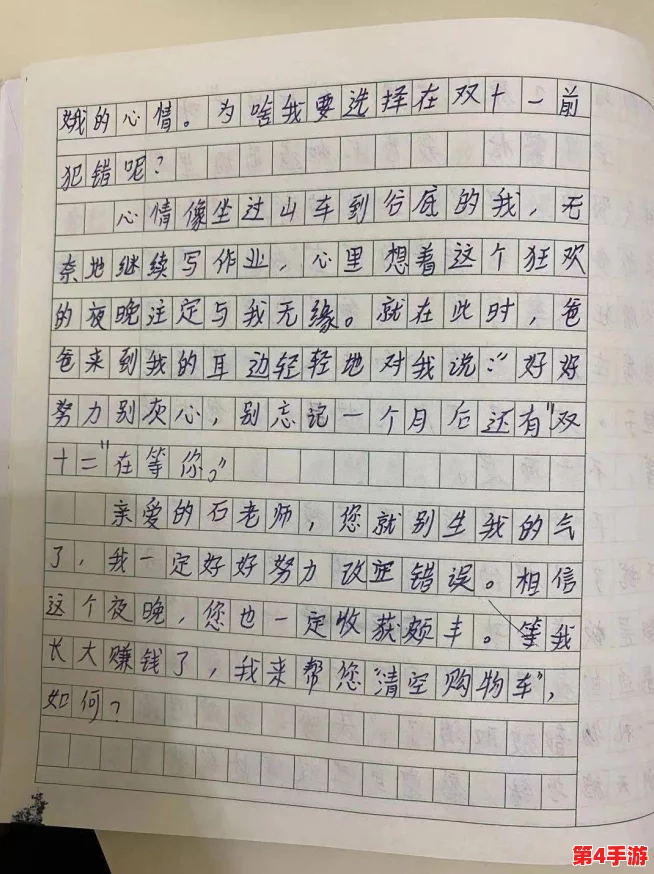 的心情。为啥我要选择在双十一前
犯错呢？
心情像坐过山车到谷底的我，无
奈地继续写作业，心里想着这个狂欢
的夜晚注定与我无缘。就在此时，爸
爸来到我的耳边轻轻地对我说：“好好
努力别灰心，别忘记一个月后还有“双
十二”在等你。”
亲爱的石老师，您就别生我的气
了，我一定好好努力改正错误。相信
这个夜晚，您也一定收获颇丰。等我
长大赚钱了，我来帮您“清空购物车”，
如何？
第4手游